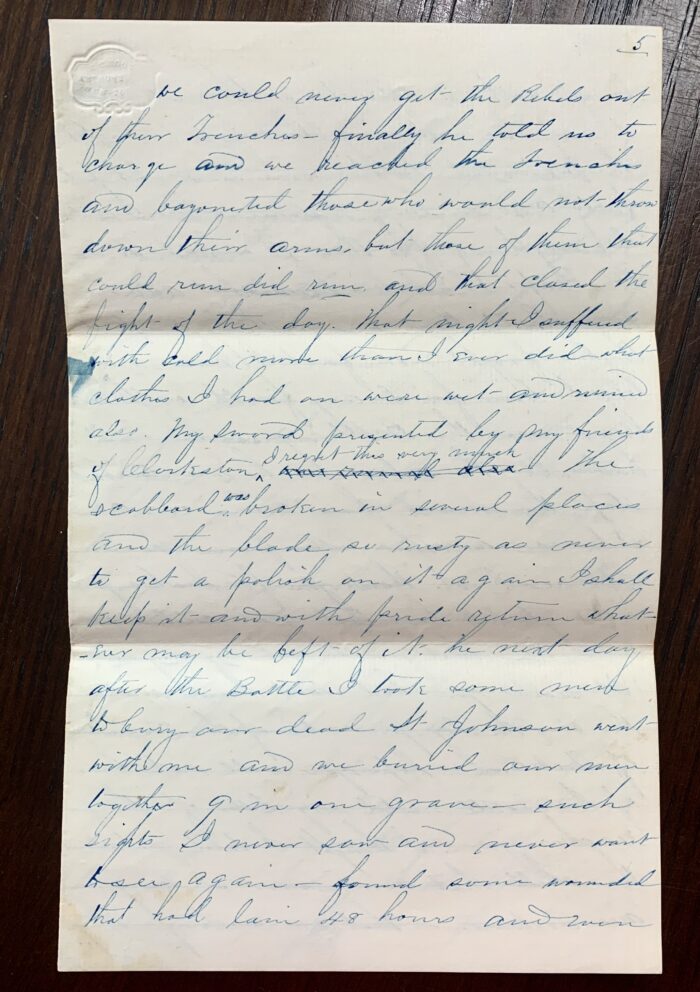 5
we could never get the Rebels out
of their Trenches - finally he told us to
charge and we reached the trenches
and bayoneted those who would not throw
down their arms. but those of them that
could run did run and that closed the
fight of the day. That night I suffered
with cold more than I ever did what
clothes I had on were wet and ruined
also. My sword presented by my friends
of Clarkston, I regret this very much The
scabbard was broken in several places
and the blade so rusty as never
to get a polish on it again I shall
keep it and with pride return what-
-ever may be left of it. The next day
after the Battle I took some men
to bury our dead Lt Johnson went
with me and we buried our men
together 9 in one grave - such
sights I never saw and never want
to see again - found some wounded
that had lain 48 hours and